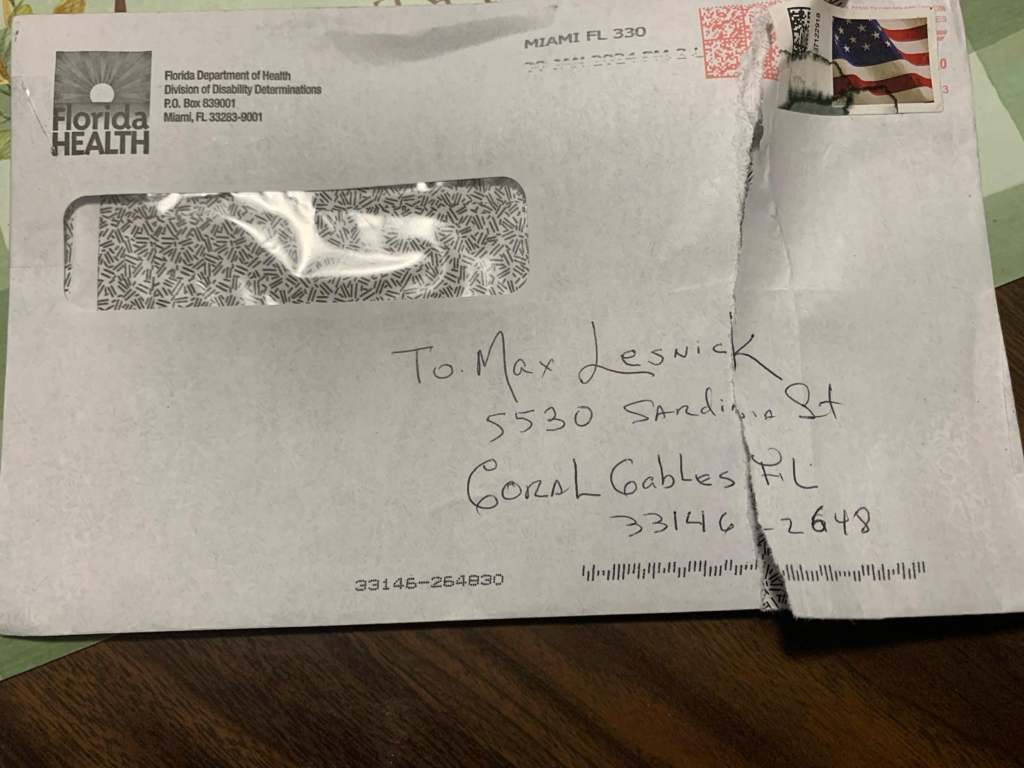 Florida
HEALTH
Florida Department of Health
Division of Disability Determinations
P.O. Box 839001
Miami, FL 33283-9001
MIAMI FL 330
30 JAN 2024 PM
To Max Lesnick
5530 SARdinia St
CORAL Gables FL
33146-2648
33146-264830